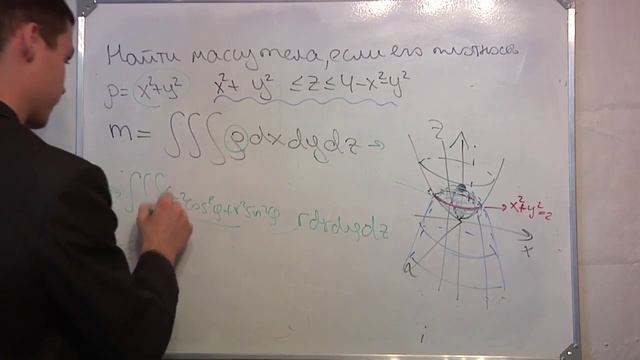 Найти массу тела, если его плотнось
ρ = x²+y² x²+ y² ≤ z ≤ 4-x²-y²
m = ∫∫∫ρdxdydz →
∫∫∫ r²cos²φ+r²sin²φ rdrdφdz
z
x²+y²=2
x